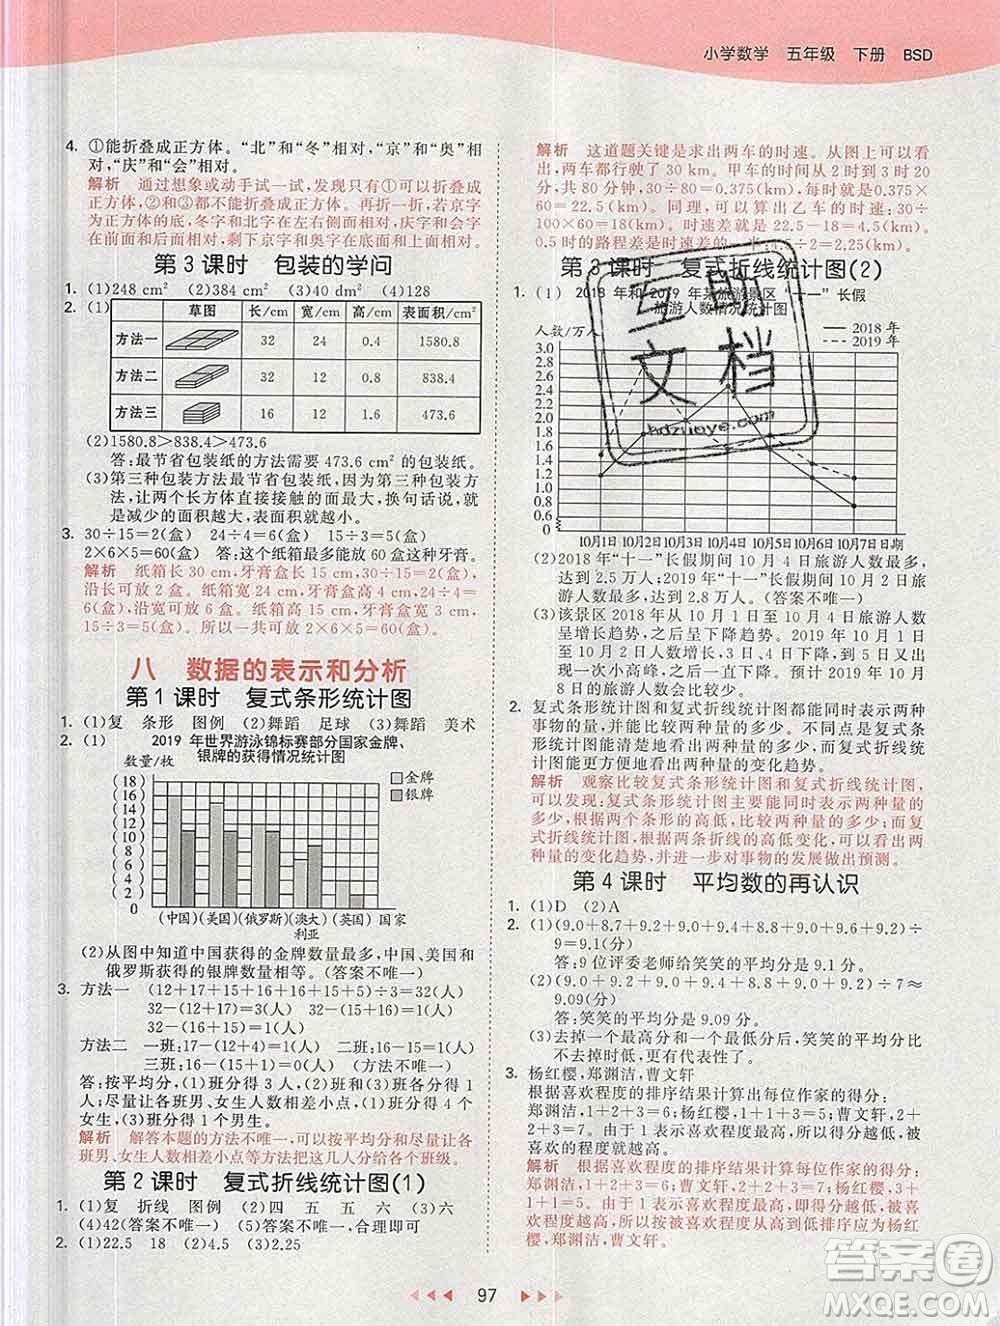 小学数学 五年级 下册 BSD
4. ①能折叠成正方体。“北”和“冬”相对,“京”和“奥”相
对,“庆”和“会”相对。
解析 通过想象或动手试一试,发现只有①可以折叠成
正方体,②和③都不能折叠成正方体。再折一折,若京字
为下面的底,冬字和北字在左右侧面相对,庆字和会字前
后侧面相对,剩下京字和奥字在底面相对。
第 3 课时 包装的学问
1. (1)248 cm² (2)384 cm² (3)40 dm² (4)128
2. (1)
草图 长/cm 宽/cm 高/cm 表面积/cm²
方法一 32 24 0.4 1580.8
方法二 32 12 0.8 838.4
方法三 16 12 1.6 473.6
(2)1580.8>838.4>473.6
答:最节省包装纸的方法需要 473.6 cm² 的包装纸。
(3)第三种包装方法最节省包装纸,因为第三种包装方
法,让两个长方体直接接触的面最大,换句话说,就
是减少的面积越大,表面积就越小。
3. 30÷15=2(盒) 24÷4=6(盒) 15÷3=5(盒)
2×6×5=60(盒) 答:这个纸箱最多能放 60 盒这种牙膏。
解析 纸箱长 30 cm,牙膏盒长 15 cm,30÷15=2(盒),
沿长可放 2 盒。纸箱宽 24 cm,牙膏盒宽 4 cm,24÷4=
6(盒),沿宽可放 6 盒。纸箱高 15 cm,牙膏盒高 3 cm,
15÷3=5(盒)。所以一共可放 2×6×5=60(盒)。
八 数据的表示和分析
第 1 课时 复式条形统计图
1. (1)复 条形 图例 (2)舞蹈 足球 (3)舞蹈 美术
2. (1) 2019 年世界游泳锦标赛部分国家金牌、
银牌的获得情况统计图
数量/枚
金牌
银牌
(18)
(16)
(14)
(12)
(10)
(8)
(6)
(4)
(2)
0
(中国) (美国) (俄罗斯) (澳大利亚) (英国) 国家
(2)从图中知道中国获得的金牌数量最多,中国、美国和
俄罗斯获得的银牌数量相等。(答案不唯一)
3. 方法一 (12+17+15+16+16+15+5)÷3=32(人)
32-(12+17)=3(人) 32-(15+16)=1(人)
32-(16+15)=1(人)
方法二 一班:17-(12+4)=1(人) 二班:16-15=1(人)
三班:16-(15+1)=0(人) (方法不唯一)
答:按平均分,(1)班分得 3 人,(2)班分得 1 人,(3)班分得 1
人;尽量让各班男、女生人数相差小点,(1)班分得 4 个
女生,(2)班分得 1 个女生,(3)班分得 1 个男生。
解析 解答本题的方法不唯一,可以按平均分和尽量让各
班男、女生人数相差小点等方法把这几人分给各个班级。
第 2 课时 复式折线统计图(1)
1. (1)复 折线 图例 (2)四 五 五 六 (3)六
(4)42(答案不唯一) (5)答案不唯一,合理即可
2. (1)22.5 18 (2)4.5 (3)2.25
解析 这道题关键是求出两车的时速。从图上可以看
出,两车都行驶了 30 km。甲车的时间从 2 时到 3 时 20
分,共 80 分钟,30÷80=0.375(km),时速是 0.375×
60=22.5(km)。同理,可以算出乙车的时速:30÷
100×60=18(km)。时速差是 22.5-18=4.5(km)。
0.5 时的路程差是时速差的一半:4.5÷2=2.25(km)。
第 3 课时 复式折线统计图(2)
1. (1) 2018 年和 2019 年某旅游景区“十一”长假
旅游人数情况统计图
人数/万人
2018 年
2019 年
3.0
2.8
2.6
2.4
2.2
2.0
1.8
1.6
1.4
1.2
1.0
0.8
0.6
0
10月1日 10月2日 10月3日 10月4日 10月5日 10月6日 10月7日 日期
(2)2018 年“十一”长假期间 10 月 4 日旅游人数最多,
达到 2.5 万人;2019 年“十一”长假期间 10 月 2 日
人数最多,达到 2.8 万人。(答案不唯一)
(3)该景区 2018 年从 10 月 1 日至 10 月 4 日旅游人数
呈增长趋势,之后呈下降趋势。2019 年 10 月 2 日
人数最多,之后人数开始下降,10 月 5 日又出现一
次小高峰,之后一直下降。预计 2019 年 10 月
8 日的旅游人数会比较少。
2. 复式条形统计图和复式折线统计图都能同时表示两种
事物的量,并能比较两种量的多少。不同点是复式条
形统计图能清楚地看出两种量的多少,而复式折线统
计图能更方便地看出两种量的变化趋势。
解析 观察比较复式条形统计图和复式折线统计图,
可以发现:复式条形统计图主要能同时表示两种量的
多少,根据条形的高低,比较两种量的多少;而复
式折线统计图,根据两条折线的高低变化,可以看出两
种量的变化趋势,并进一步对事物的发展做出预测。
第 4 课时 平均数的再认识
1. (1)D (2)A
2. (1)(9.0+8.7+9.2+9.1+9.3+9.0+9.6+9.2+8.8)÷
9=9.1(分)
答:9 位评委老师给笑笑的平均分是 9.1 分。
(2)(9.0+9.2+9.1+9.3+9.0+9.2+8.8)÷7≈
9.09(分)
答:笑笑的平均分是 9.09 分。
(3)去掉一个最高分和一个最低分后,笑笑的平均分比
不去掉时低,更有代表性了。
3. 杨红樱,郑渊洁,曹文轩
根据喜欢程度的排序结果计算出每位作家的得分:
郑渊洁,2+1+3=6;杨红樱,1+1+3=5;曹文轩,2+
3+2=7。由于 1 表示喜欢程度最高,所以分数越低,被
喜欢的程度就越高。
解析 根据喜欢程度的排序结果计算每位作家的得分: